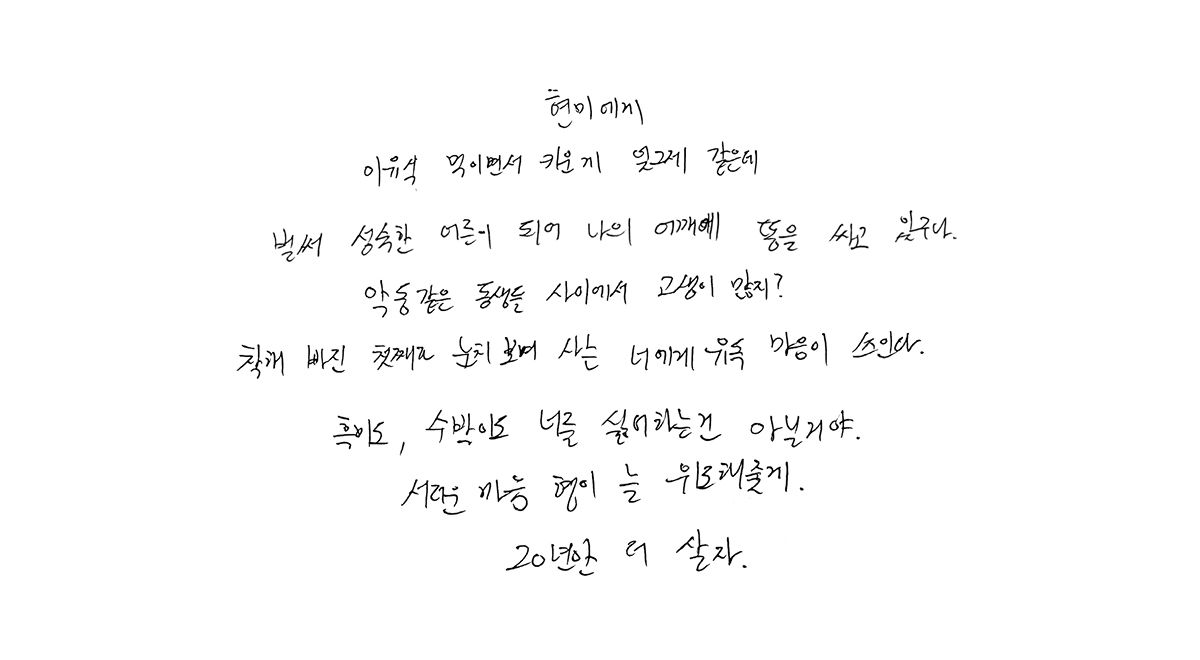 현미에게
이유식 먹이면서 키운게 엊그제 같은데
벌써 성숙한 어른이 되어 나의 어깨에 똥을 싸고 있구나.
악동같은 동생들 사이에서 고생이 많지?
착해 빠진 첫째로 눈치보며 사는 너에게 유독 마음이 쓰인다.
흑미도, 수박이도 너를 싫어하는건 아닐거야.
서러운 마음 형이 늘 위로해줄게.
20년만 더 살자.